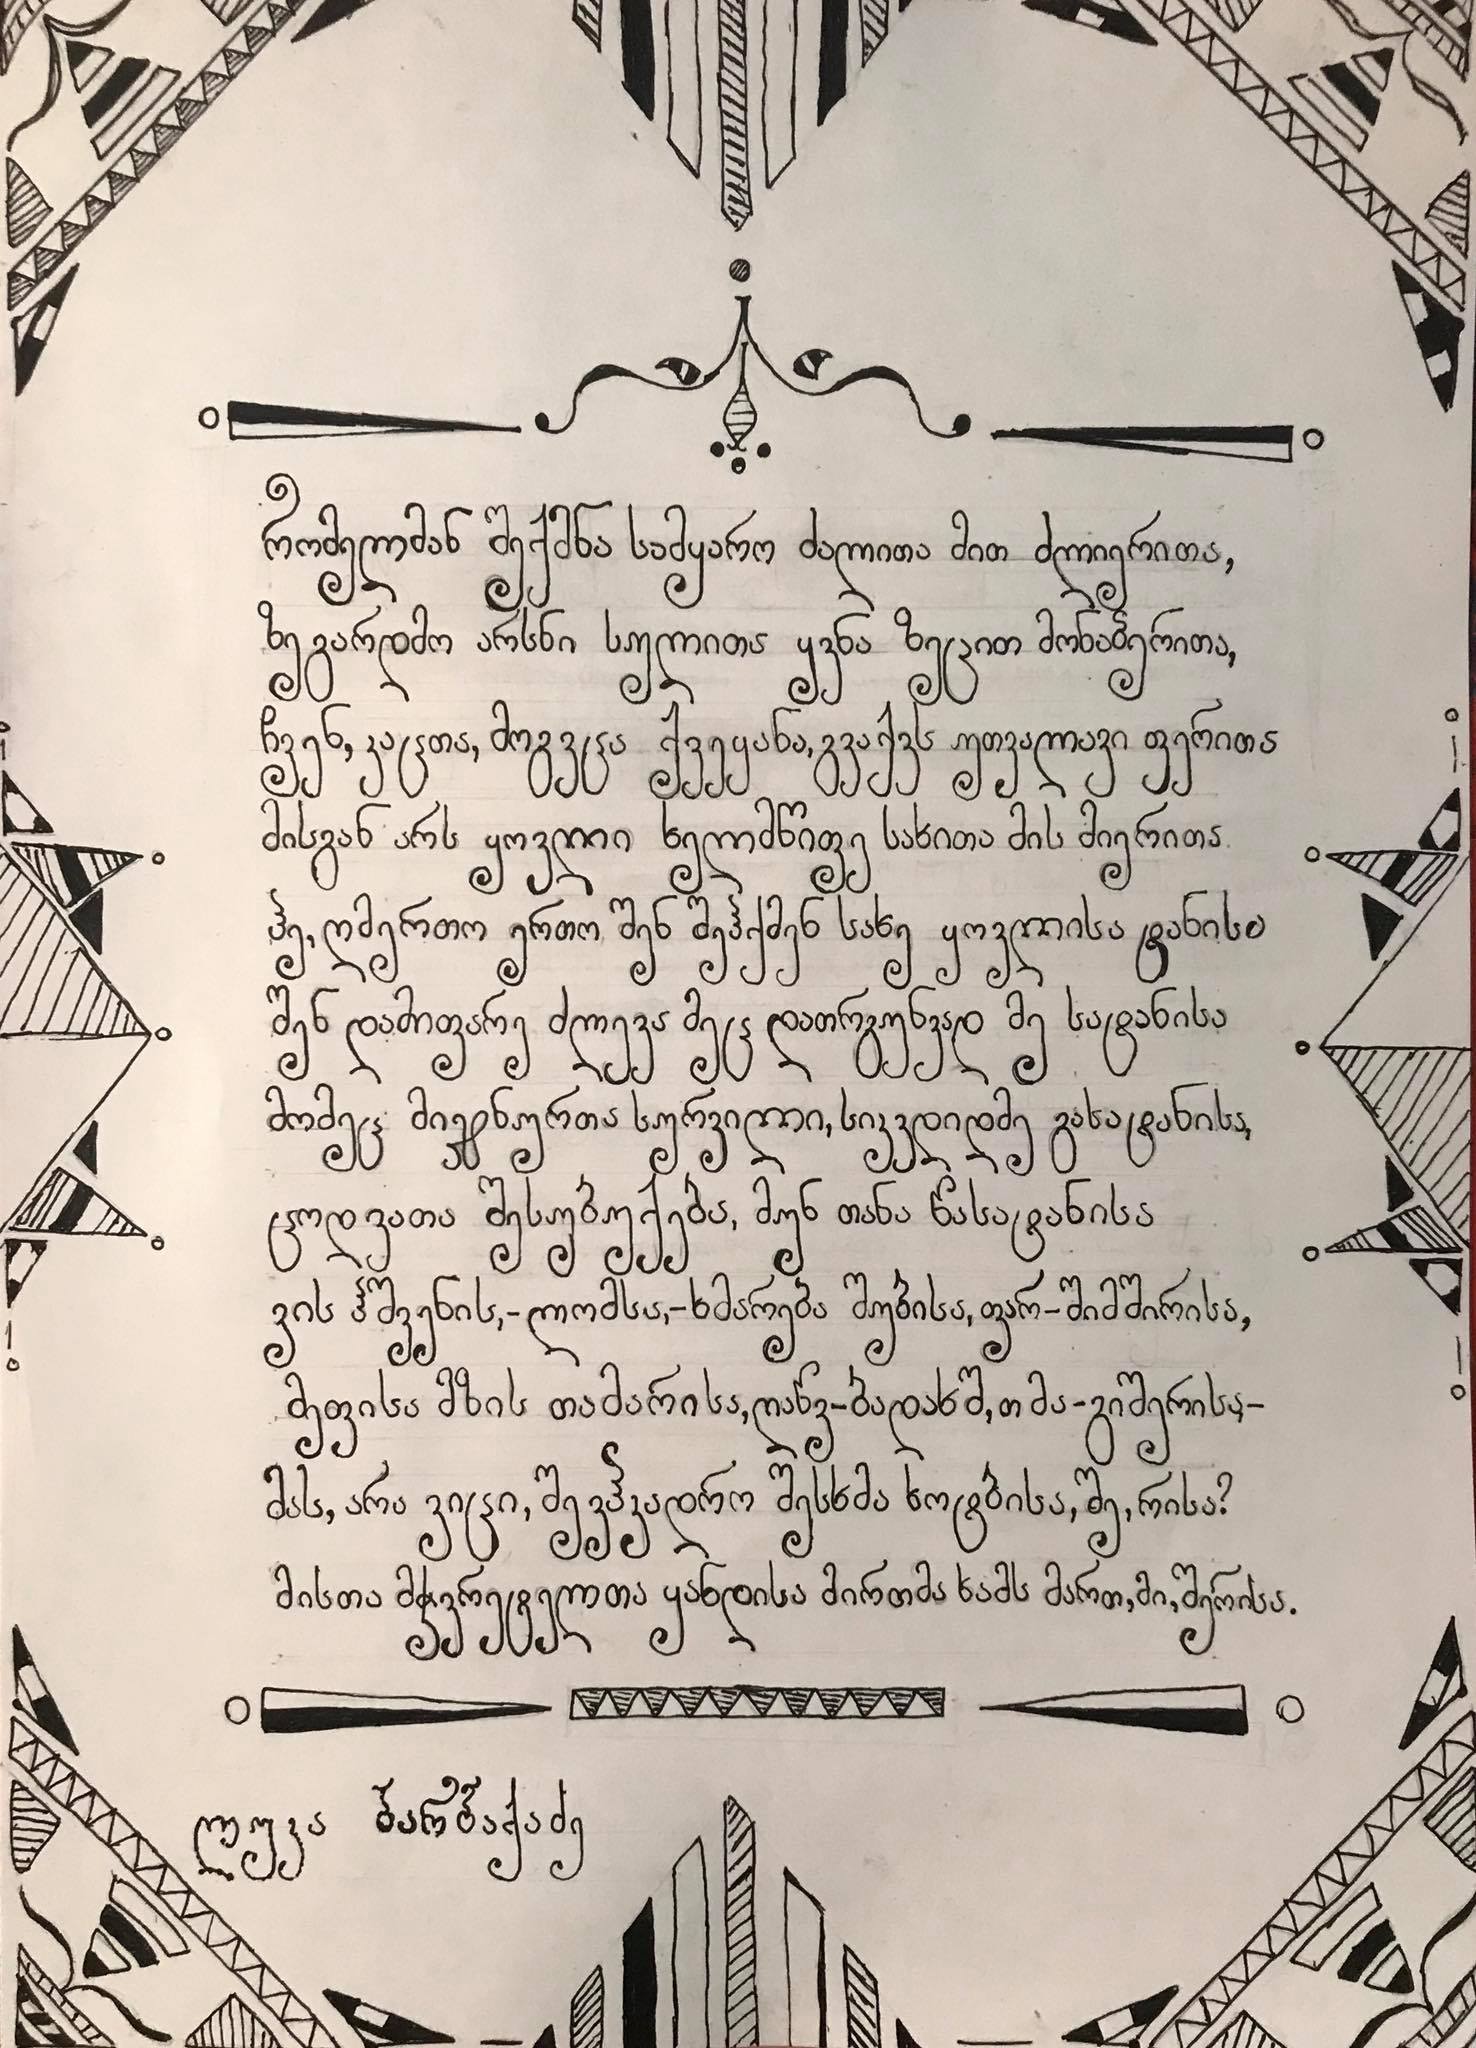 რომელმან შექმნა სამყარო ძალითა მით ძლიერითა,
ზეგარდმო არსნი სულითა ყვნა ზეცით მონაბერითა,
ჩვენ, კაცთა, მოგვცა ქვეყანა, გვაქვს უთვალავი ფერითა
მისგან არს ყოვლი ხელმწიფე სახითა მის მიერითა.
ჰე, ღმერთო ერთო შენ შეჰქმენ სახე ყოვლისა ტანისა
შენ დამიფარე ძლევა მეც დათრგუნვად მე სატანისა
მომეც მიჯნურთა სურვილი, სიკვდიდმე გასატანისა,
ცოდვათა შესუბუქება, მუნ თანა წასატანისა
ვის ჰშვენის,-ლომსა,-ხმარება შუბისა, ფარ-შიმშირისა,
მეფისა მზის თამარისა, ღაწვ-ბადახშ, თმა-გიშერისა,-
მას, არა ვიცი, შევჰკადრო შესხმა ხოტბისა, შე, რისა?
მისთა მჭვრეტელთა ყანდისა მირთმა ხამს მართ, მი, შერისა.
ლუკა ბარბაქაძე